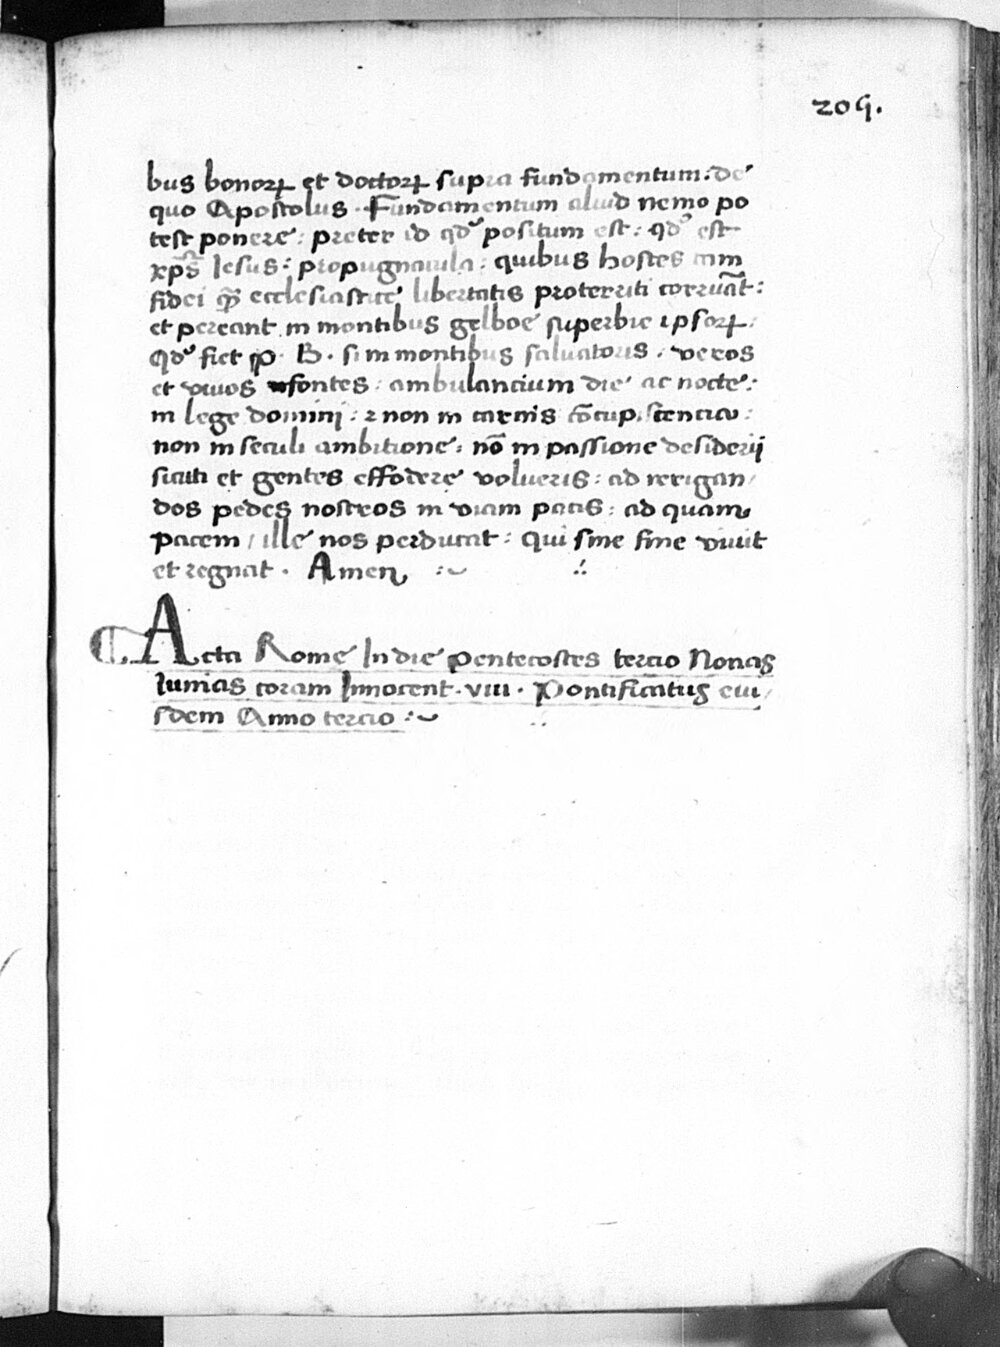 209.
bus bonoꝝ et doctoꝝ supra fundamentum: de
quo Apostolus. Fundamentum aliud nemo po
test ponere: preter id qd' positum est: qd' est
xp̄s Iesus: propugnacula: quibus hostes cum
fidei qꝫ ecclesiastice libertatis proterriti corruāt:
et pereant in montibus gelboe superbie ipsoꝝ:
Qd' fiet si in montibus saluatoris. veros
et viuos fontes: ambulancium die ac nocte:
in lege domini: ⁊ non in carnis cōcupiscencia:
non in seculi ambitione: nō in passione desiderij
sicuti et gentes effodere volueris: ad rerigan/
dos pedes nostros in viam pacis: ad quam
pacem / ille nos perducat: qui sine fine viuit
et regnat. Amen :~ ∴
Acta Rome In die pentecostes tercio Nonas
Iunias coram Innocent. viii. Pontificatus eiu/
sdem Anno tercio :~